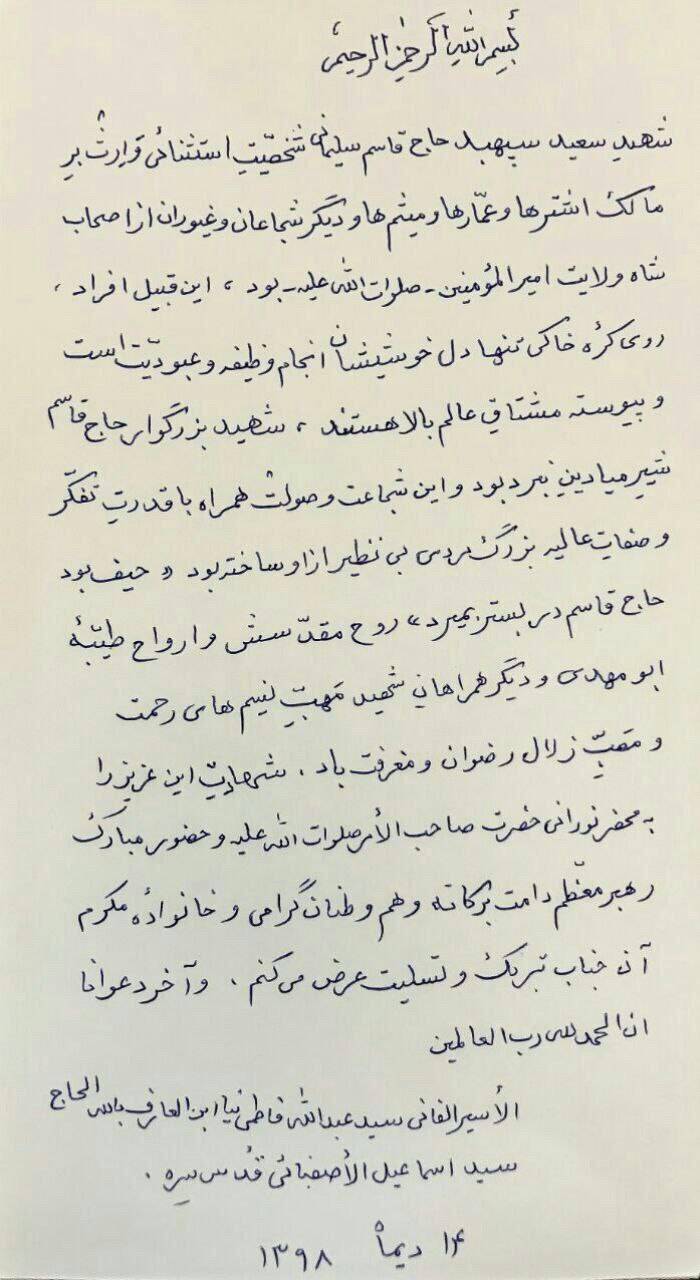 بسم الله الرحمن الرحیم
شهید سعید سپهبد حاج قاسم سلیمانی شخصیّتِ استثنائی و ارثْ برِ
مالک اشترها و عمّارها و میثم‌ها و دیگر شجاعان و غیوران از اصحاب
شاه ولایت امیرالمؤمنین - صلوات الله علیه - بود ، این قبیل افراد ،
روی کرهٔ خاکی تنها دل خوشیشان انجام وظیفه و عبودیّت است
و پیوسته مشتاقِ عالم بالا هستند ، شهید بزرگوار حاج قاسم
شیرِ میادینِ نبرد بود و این شجاعت و صولتْ همراه با قدرتِ تفکّر
و صفاتِ عالیه بزرگ مردی بی نظیر از او ساخته بود « حیف بود
حاج قاسم در بستر بمیرد » روح مقدّسش و ارواح طیّبهٔ
ابومهدی و دیگر همراهانِ شهید مَهَبِّ نسیم های رحمت
و مَصَبِّ زلال رضوان و مغفرت باد . شهادتِ این عزیز را
به محضر نورانی حضرت صاحب الأمر صلوات الله علیه و حضور مبارک
رهبر معظّم دامت برکاته و هم وطنان گرامی و خانوادهٔ مکرم
آن جناب تبریک و تسلیت عرض می کنم . و آخر دعوانا
ان الحمدلله رب العالمین
الأسیر الفانی سید عبدالله فاطمی نیا ابن العارف بالله الحاج
سید اسماعیل الأصفیائی قُدّس سِرّه .
۱۴ دیماه ۱۳۹۸